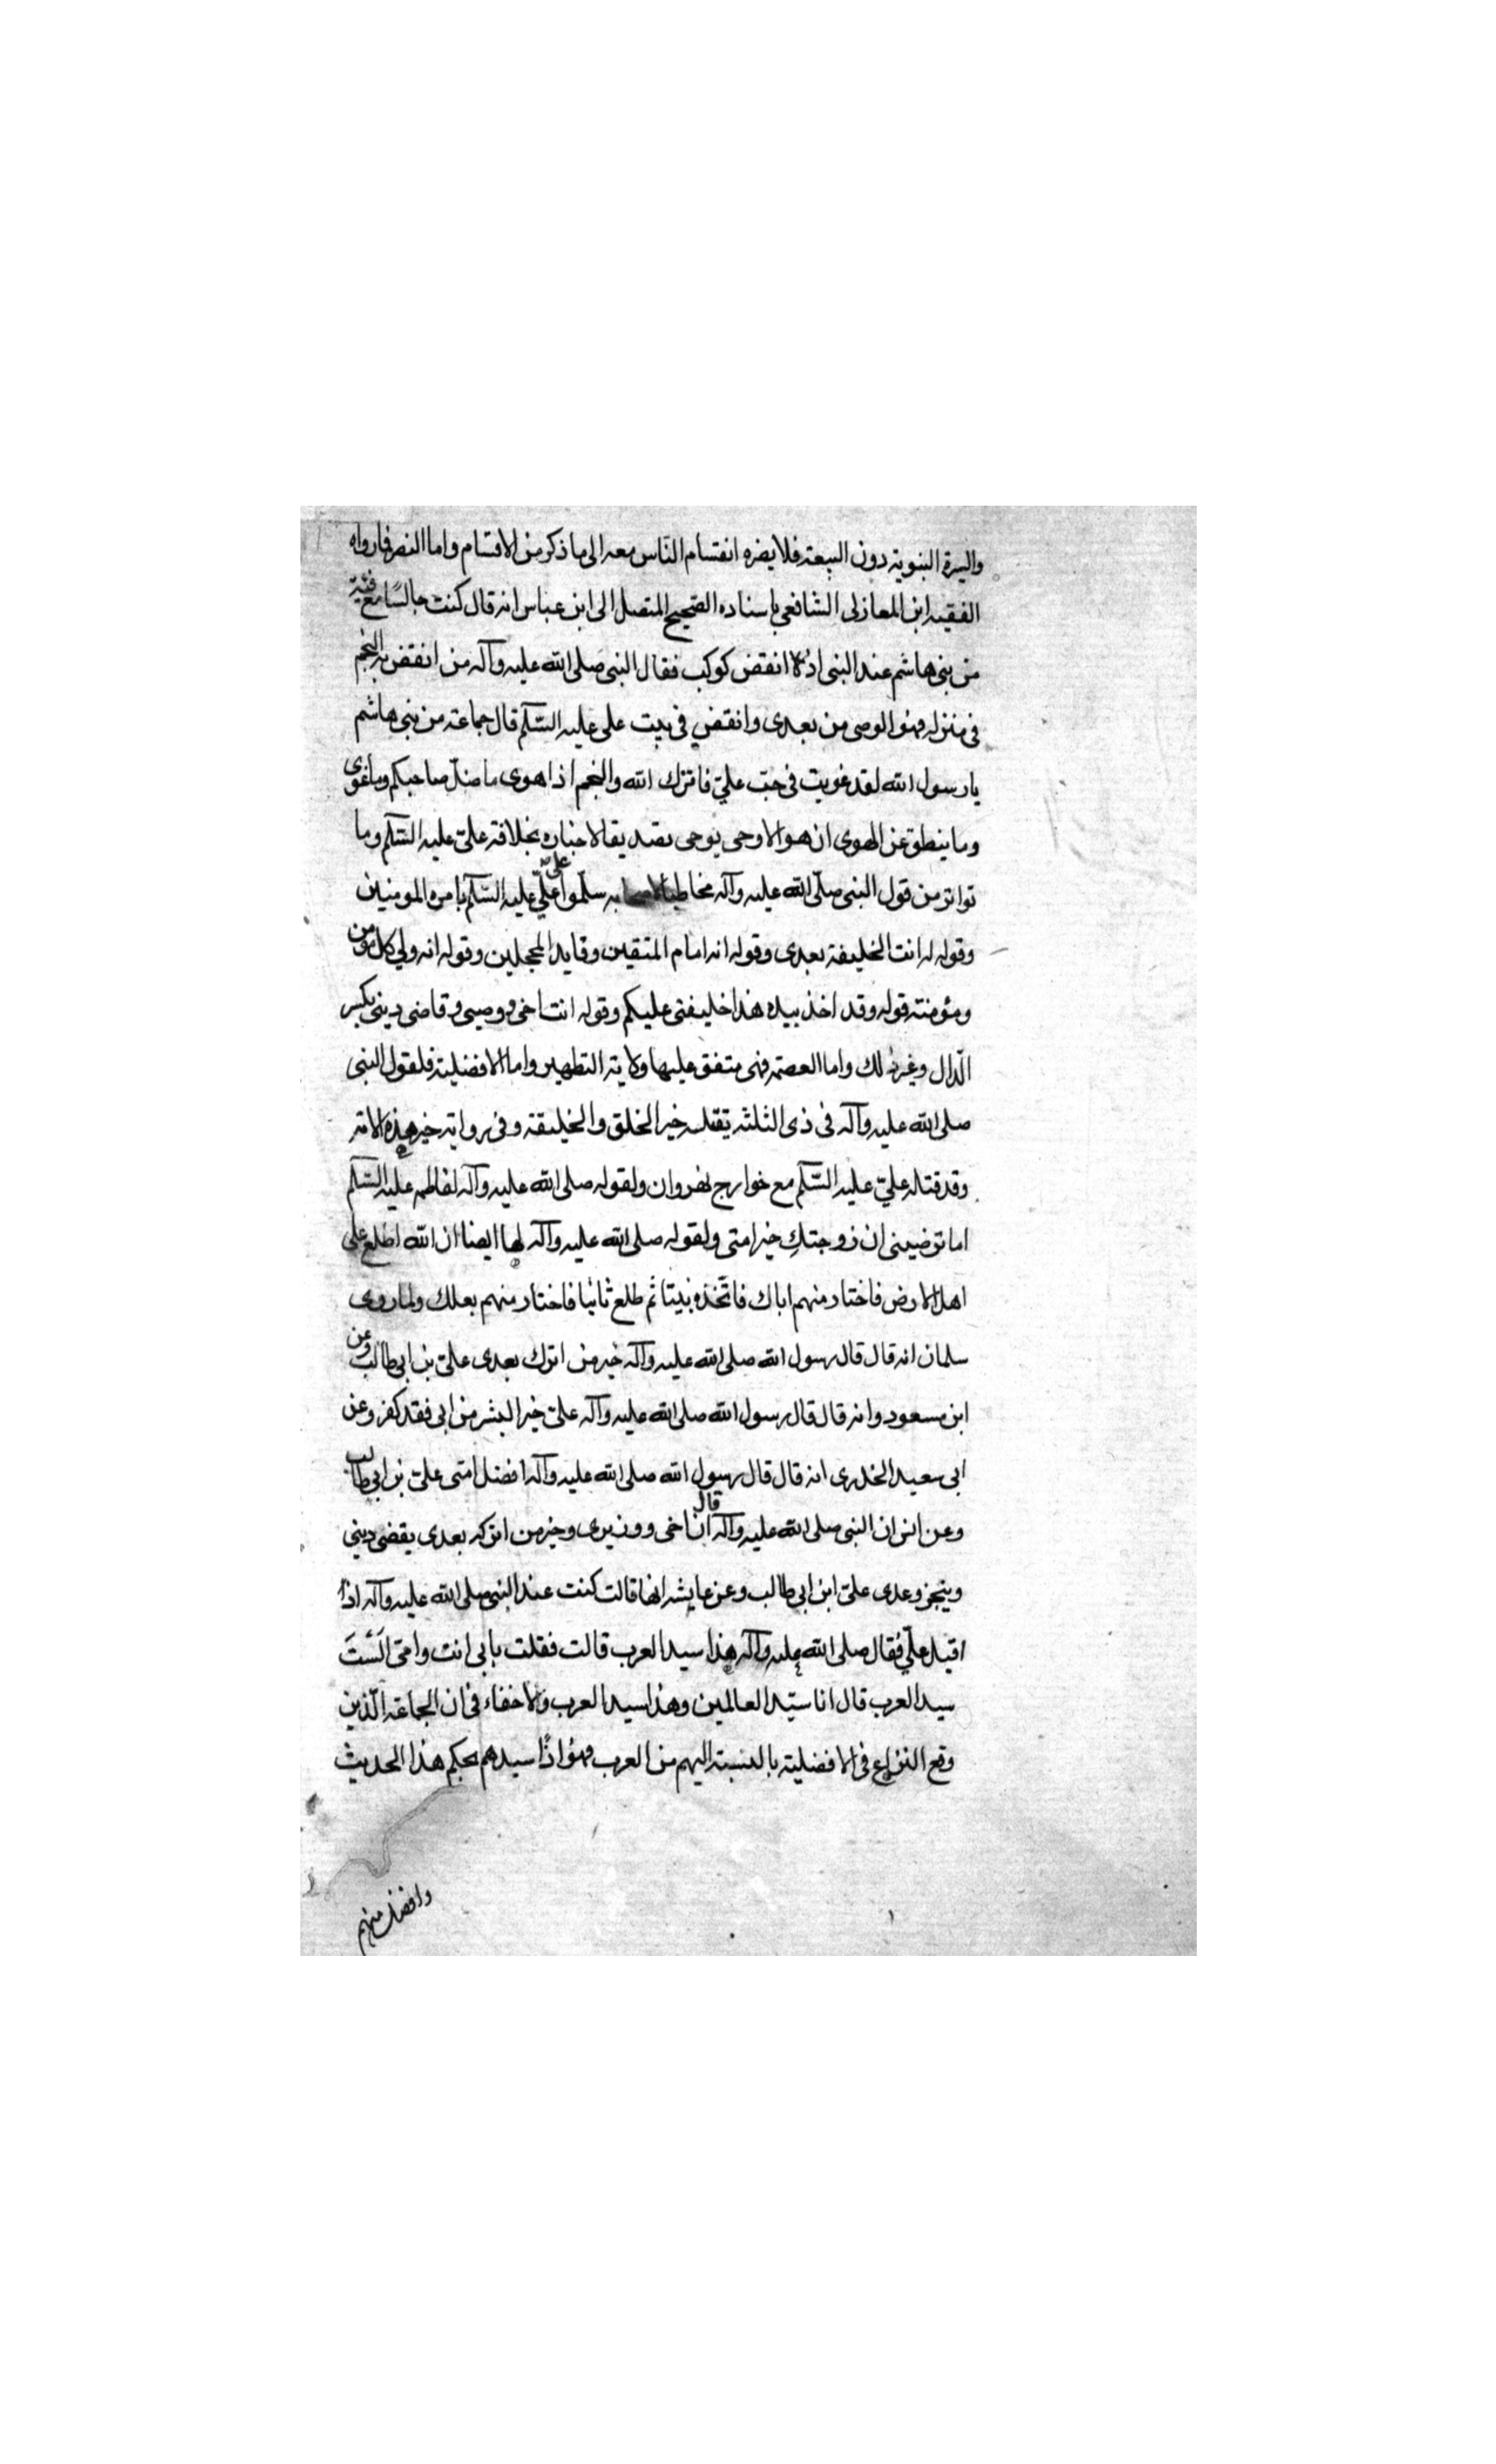 والسيرة النبوية دون البيعة فلا يضره انقسام الناس معه الى ما ذكر من الاقسام واما النص فما رواه
الفقيه ابن المغازلى الشافعي باسناده الصحيح المتصل الى ابن عباس انه قال كنت جالسًا مع فتية
من بنى هاشم عند النبى اذ انقض كوكب فقال النبى صلى الله عليه وآله من انقض به النجم
فى منزله فهو الوصى من بعدى وانقض في بيت على عليه السّلم قال جماعة من بنى هاشم
يا رسول الله لقد غويت فى حبّ عليّ فانزل الله والنجم اذا هوى ما ضلّ صاحبكم وما غوى
وما ينطق عن الهوى ان هو الا وحى يوحى تصديقا لاخباره بخلافة علىّ عليه السّلم وما
تواتر من قول النبى صلّى الله عليه وآله مخاطبا لاصحابه سلّموا على عليّ عليه السّلم بامره المومنين
وقوله له انت الخليفة بعدى وقوله انه امام المتقين وقايد المحجلين وقوله انه ولي كل مؤمن
ومؤمنته قوله وقد اخذ بيده هذا خليفتى عليكم وقوله انت اخى ووصيى وقاضى دينى بكسر
الدّال وغير ذلك واما العصمة فهى متفق عليها ولاية التطهير واما الافضلية فلقول النبى
صلى الله عليه وآله فى ذى الثلثه يقتله خير الخلق والخليقة وفى رواية خير هذه الامة
وقد قتله عليّ عليه السّلم مع خوارج نهروان ولقوله صلى الله عليه وآله لفاطمه عليه السّلم
اما ترضيىنى ان زوجتكِ خير امتى ولقوله صلى الله عليه وآله لها ايضا ان الله اطلع على
اهل الارض فاختار منهم اباك فاتّخذه نبيتا ثم طلع ثانيا فاختار منهم بعلك ولما روى
سلمان انه قال قال رسول الله صلى الله عليه وآله خير من اترك بعدى علىّ بن ابى طالب وعن
ابن مسعود وانه قال قال رسول الله صلى الله عليه وآله علىّ خير البشر من ابى فقد كفر وعن
ابى سعيد الخدرى انه قال قال رسول الله صلى الله عليه وآله افضل امتى علىّ بن ابي طالب
وعن انس ان النبى صلى الله عليه وآله قال ان اخى ووزيرى وخير من اتركه بعدى يقضى دينى
وينجز وعدى علىّ ابن ابى طالب وعن عايشه انها قالت كنت عند النبى صلى الله عليه وآله اذًا
اقبل عليّ فقال صلى الله عليه وآله هذا سيد العرب قالت فقلت بابى انت وامّى اَلَسْتَ
سيد العرب قال انا سيّد العالمين وهذا سيد العرب ولا خفاء فى ان الجماعة الّذين
وقع النزاع فى الافضلية بالنسبة اليهم من العرب فهو اذًا سيدهم بحكم هذا الحديث
وافضل منهم